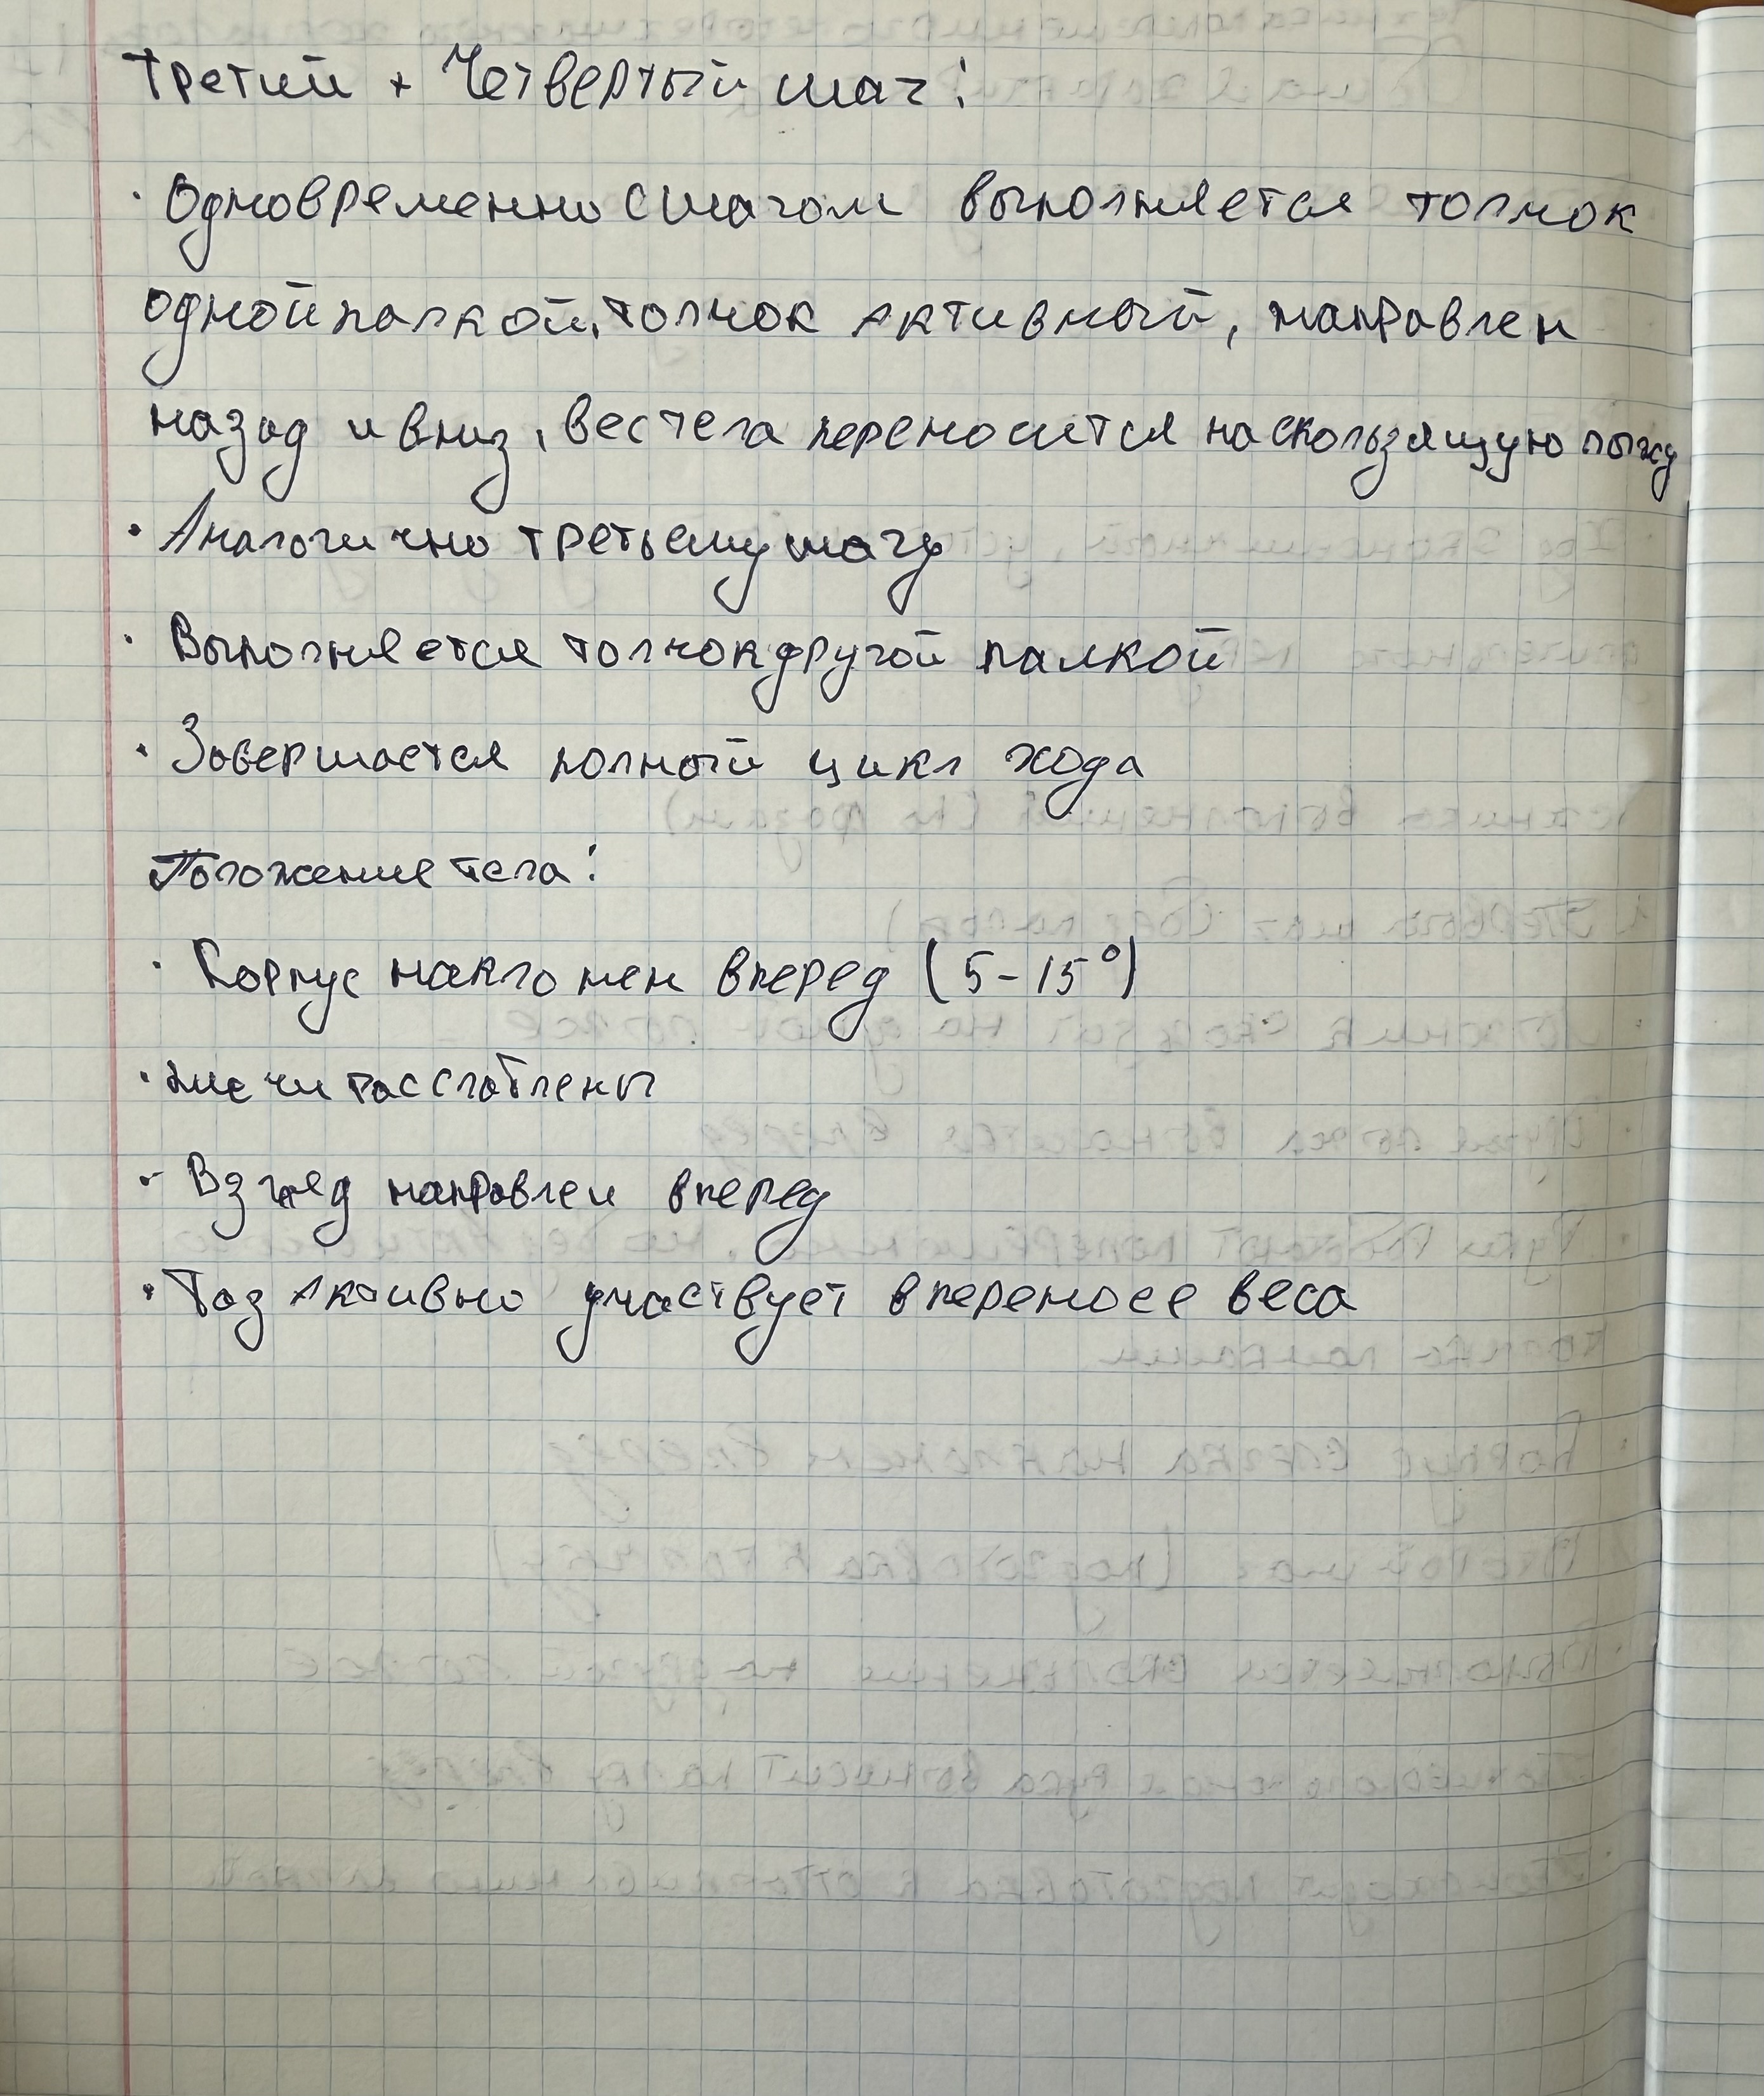 Третий + Четвертый шаг:
· Одновременно с шагом выполняется толчок
одной палкой, толчок активный, направлен
назад и вниз, вес тела переносится на скользящую лыжу
· Аналогично третьему шагу
· Выполняется толчок другой палкой
· Завершается полный цикл хода
Положение тела:
· Корпус наклонен вперед (5-15°)
· Плечи расслаблены
- Взгляд направлен вперед
· Таз активно участвует в переносе веса